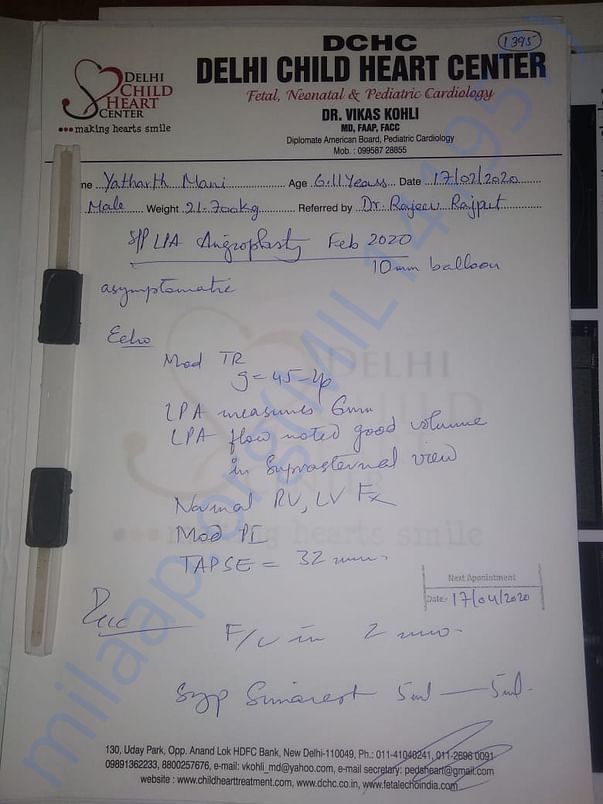 DCHC
1395
DELHI CHILD HEART CENTER
DELHI
CHILD
HEART
CENTER
...making hearts smile
Fetal, Neonatal & Pediatric Cardiology
DR. VIKAS KOHLI
MD, FAAP, FACC
Diplomate American Board, Pediatric Cardiology
Mob. : 099587 28855
ne Yatharth Mani Age 6.11 Years Date 17/02/2020
Male Weight 21.700kg Referred by Dr. Rajeev Rajput
S/P LPA Angioplasty Feb 2020
10mm balloon
asymptomatic
Echo
Mod TR
g=45
LPA measures 6mm
LPA flow noted good volume
in Suprasternal view
Normal RV, LV Fx
Mod PI
TAPSE = 32 mm.
Next Appointment
Date: 17/04/2020
F/U in 2 mo.
Syp 5ml — 5ml.
130, Uday Park, Opp. Anand Lok HDFC Bank, New Delhi-110049, Ph.: 011-41040241, 011-2696 0091
09891362233, 8800257676, e-mail: vkohli_md@yahoo.com, e-mail secretary: pedsheart@gmail.com
website : www.childhearttreatment.com, www.dchc.co.in, www.fetalechoindia.com